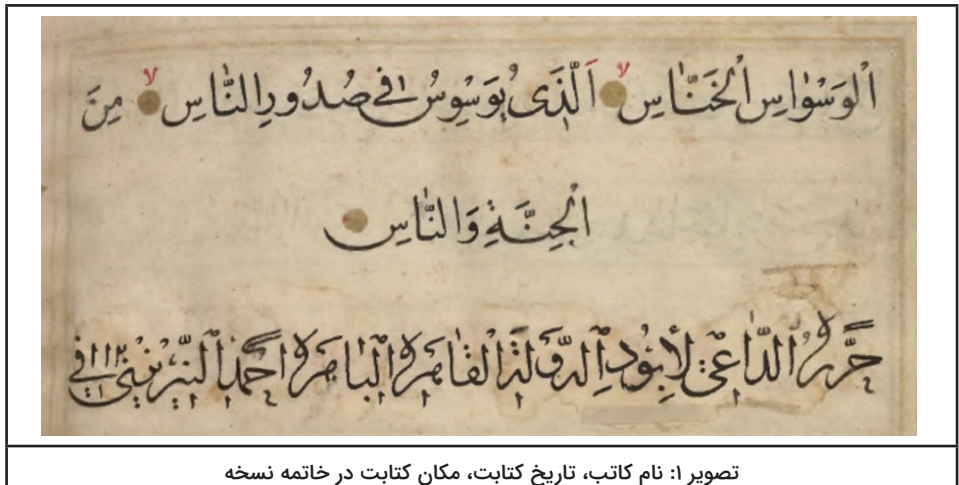 اَلْوَسْوٰاسِ اَلْخَنّٰاسِ لا اَلَّذَى يُوَسْوِسُ فِى صُدُورِ النّٰاسِ لا مِنَ
اَلْجِنَّةِ وَالنّٰاسِ
حَرَّرَهُ الدّٰاعِى لِأُبُودِ الدَّوْلَةِ الْقٰاهِرَةِ الْبٰاهِرَةِ احْمَدُ النَّيْرِيزِىّ فى
تصویر ۱: نام کاتب، تاریخ کتابت، مکان کتابت در خاتمه نسخه